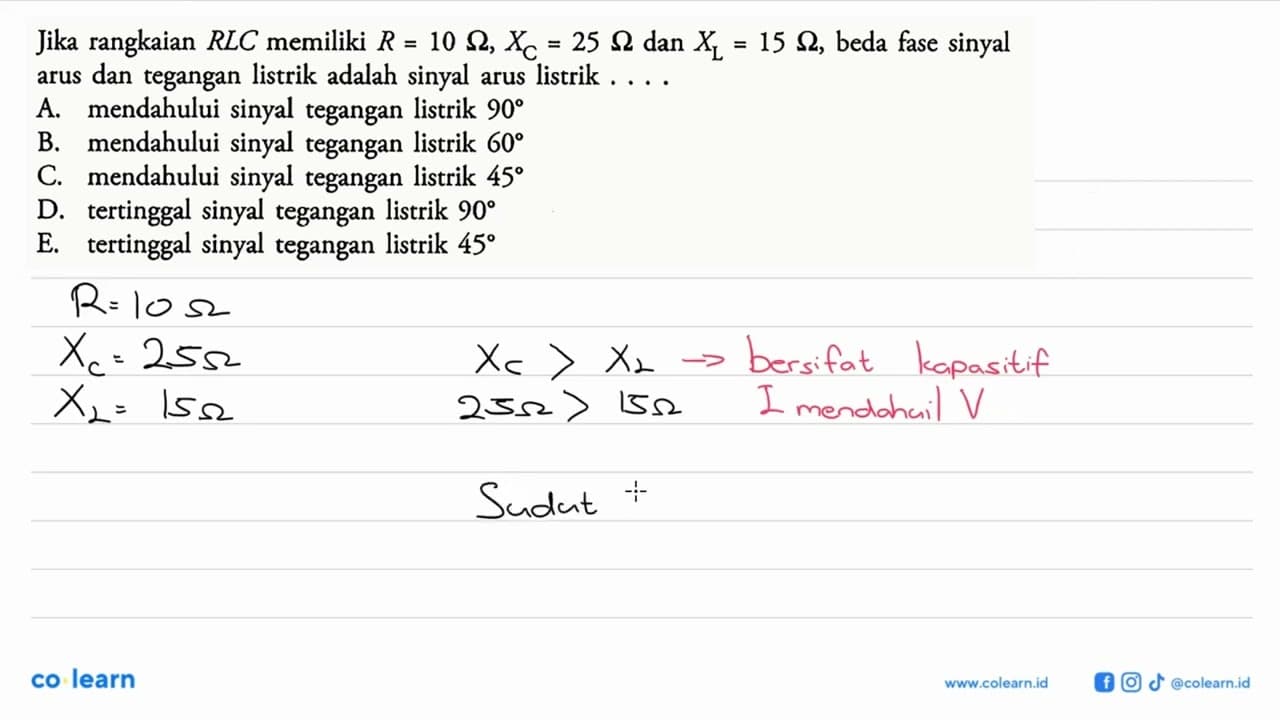 Jika rangkaian RLC memiliki R = 10 Ω, X_C = 25 Ω dan X_L = 15 Ω, beda fase sinyal
arus dan tegangan listrik adalah sinyal arus listrik . . . .
A. mendahului sinyal tegangan listrik 90°
B. mendahului sinyal tegangan listrik 60°
C. mendahului sinyal tegangan listrik 45°
D. tertinggal sinyal tegangan listrik 90°
E. tertinggal sinyal tegangan listrik 45°
R = 10 Ω
X_C = 25 Ω
X_L = 15 Ω
X_C > X_L → bersifat kapasitif
25 Ω > 15 Ω I mendahuil V
Sudut
co learn
www.colearn.id @colearn.id